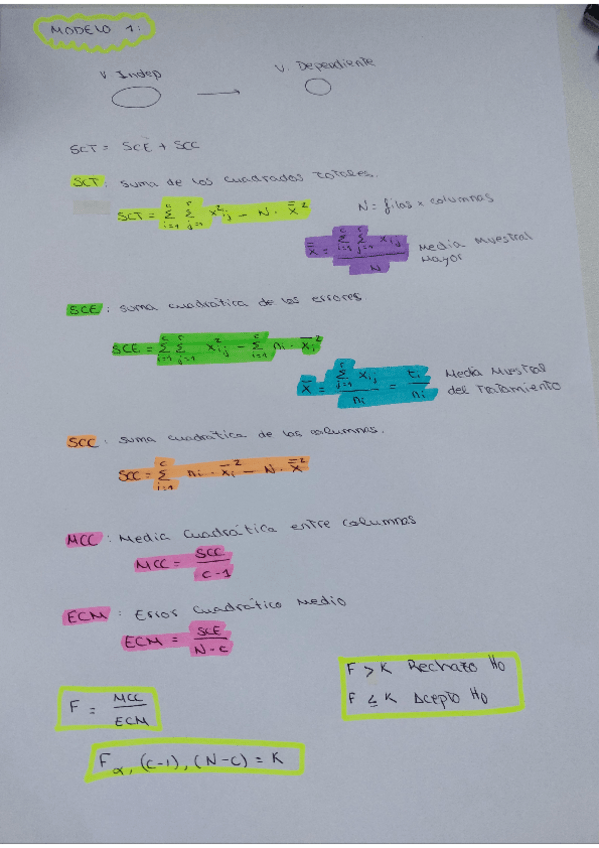 MODELO 1:
V. Indep → V. Dependiente
SCT = SCE + SCC
SCT: suma de los cuadrados totales.
SCT = Σ_{i=1}^{c} Σ_{j=1}^{r} x²ᵢⱼ - N · x̿²
N = filas x columnas
x̿ = (Σ_{i=1}^{c} Σ_{j=1}^{r} xᵢⱼ) / N Media Muestral
Mayor
SCE: suma cuadrática de los errores
SCE = Σ_{i=1}^{c} Σ_{j=1}^{r} x²ᵢⱼ - Σ_{i=1}^{c} nᵢ · x̄ᵢ²
x̄ = (Σ_{j=1}^{r} xᵢⱼ) / nᵢ = tᵢ / nᵢ Media Muestral
del Tratamiento
SCC: suma cuadrática de las columnas.
SCC = Σ_{i=1}^{c} nᵢ · x̄ᵢ² - N · x̿²
MCC: Media Cuadrática entre columnas
MCC = SCC / c-1
ECM: Error Cuadrático Medio
ECM = SCE / N-c
F > K Rechazo H₀
F ≤ K Acepto H₀
F = MCC / ECM
F α, (c-1), (N-c) = K